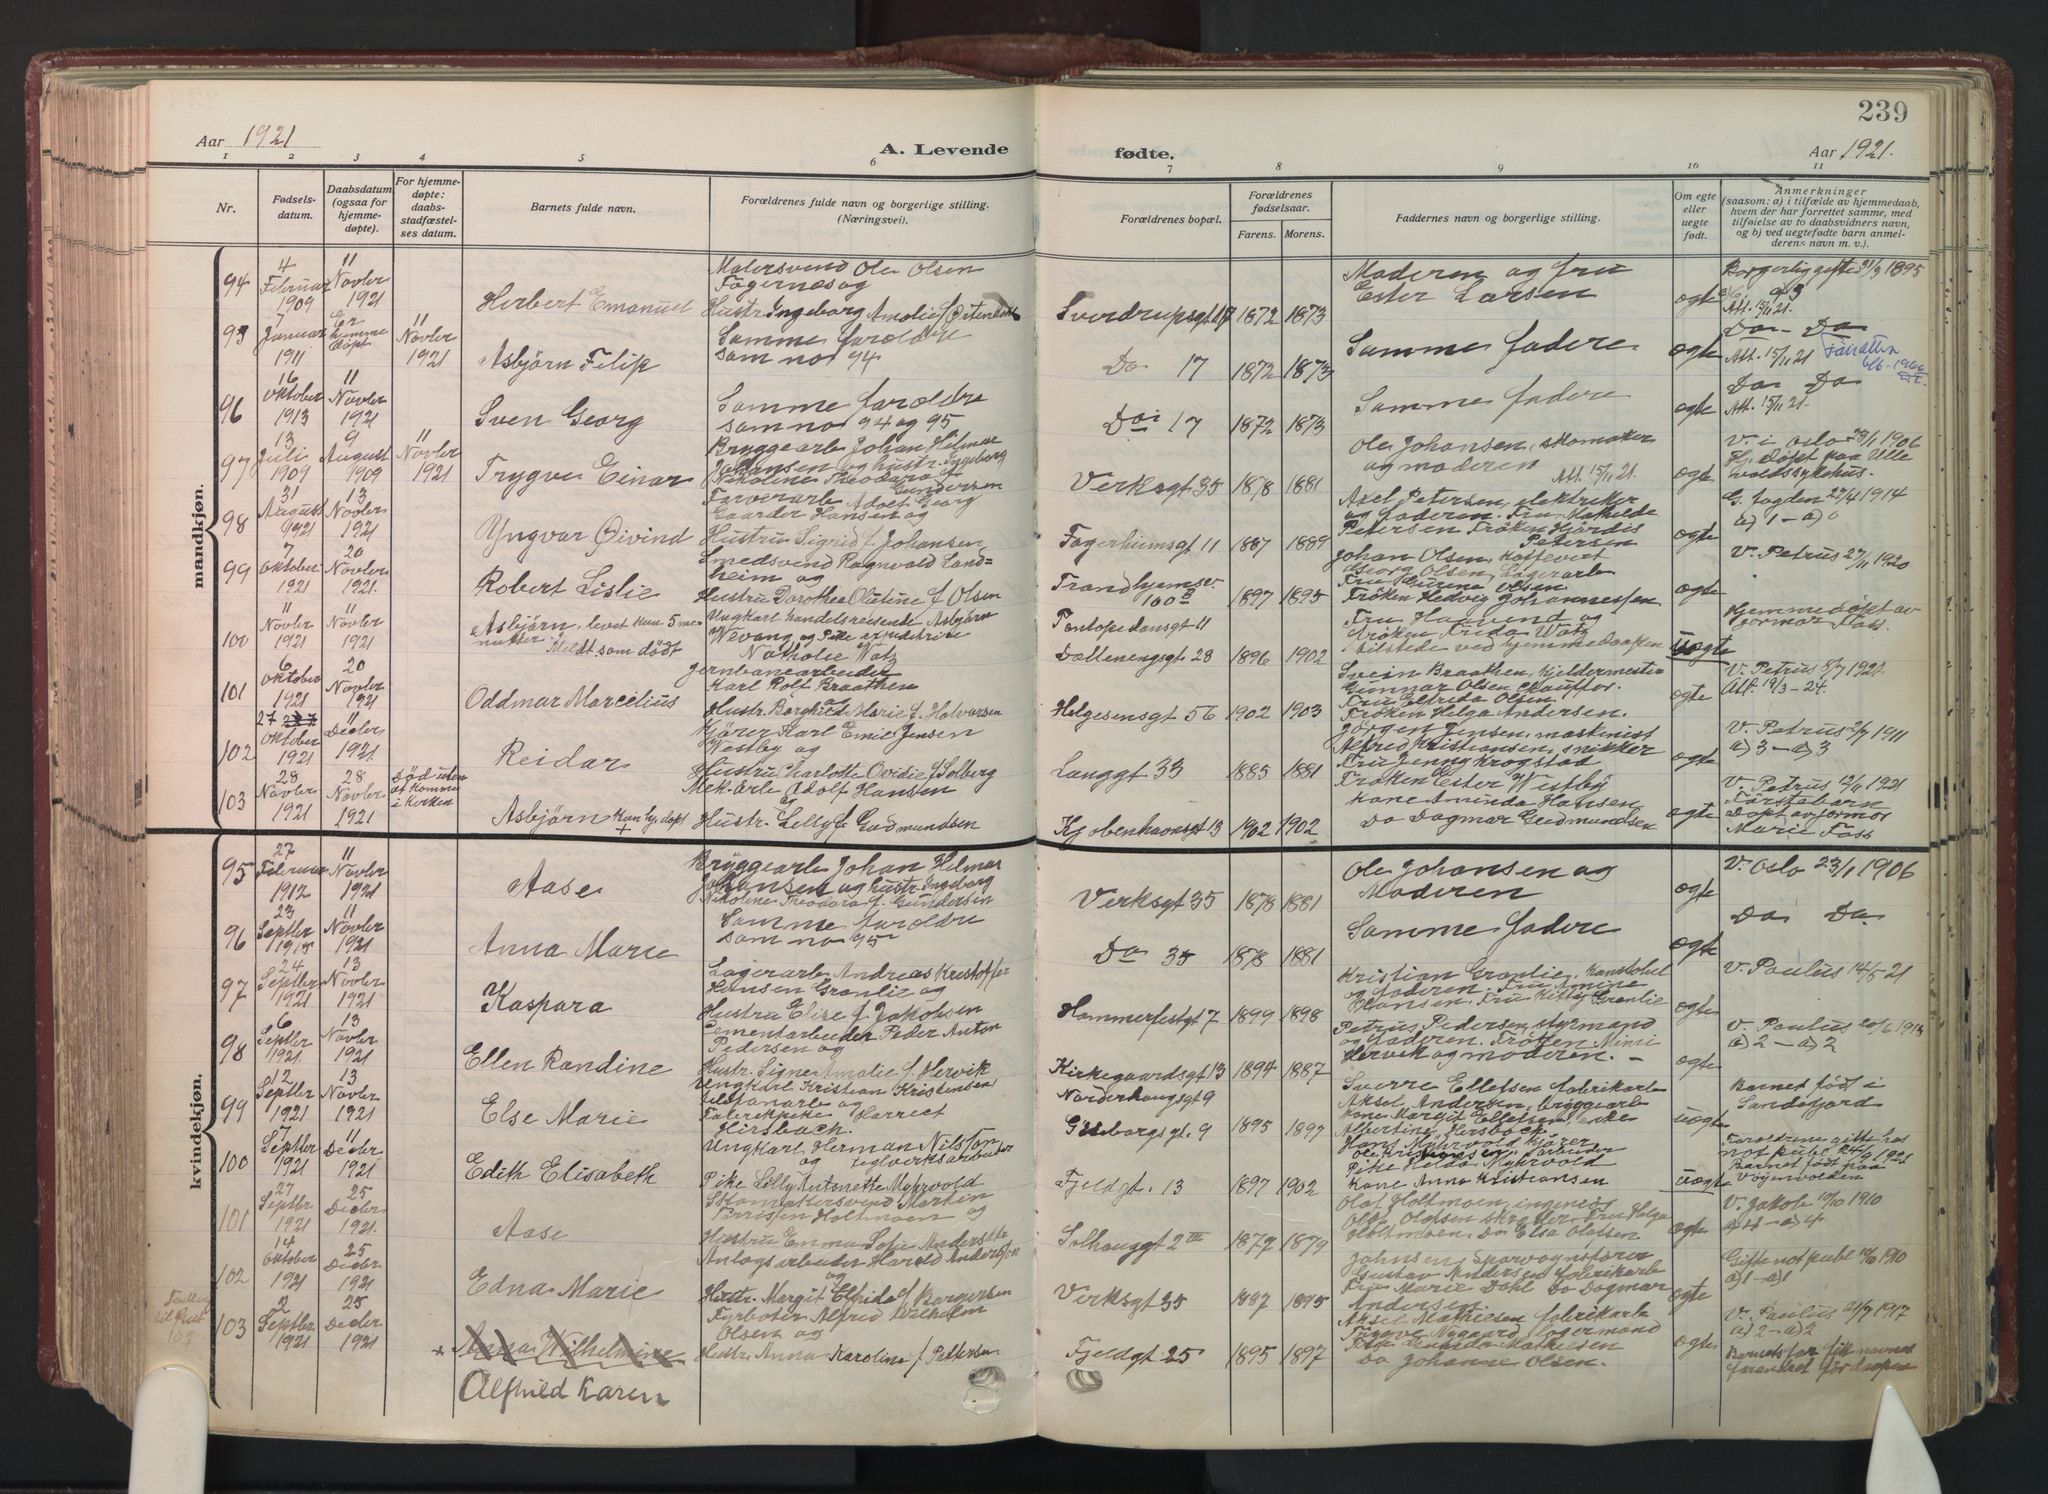 239
Aar 1921
A. Levende
fødte.
Aar 1921.
1 2 3 4 5 6 7 8 9 10 11
Nr.
Fødsels-
datum.
Daabsdatum
(ogsaa for
hjemme-
døpte).
For hjemme-
døpte:
daabs-
stadfæstel-
ses datum.
Barnets fulde navn.
Forældrenes fulde navn og borgerlige stilling.
(Næringsvei).
Forældrenes bopæl.
Forældrenes
fødselsaar.
Farens. Morens.
Faddernes navn og borgerlige stilling.
Om egte
eller
uegte
født.
Anmerkninger
(saasom: a) i tilfælde av hjemmedaab,
hvem der har forrettet samme, med
tilføielse av to daabsvidners navn,
og b) ved uegtefødte barn anmel-
derens navn m. v.).
mandkjøn.
94
4
Februar
1909
11
Novber
1921
Herbert Emanuel
Malersvend Ole Olsen
Fagernæs og
Hustr. Ingeborg Amalie f
Sverdrupsgt 17
1872 1873
Moderen og fru
Ester Larsen
ogte
Borgerlig gifte 31/3 1895
Att. 15/11 21.
95
7
Januar
1911
Er
hjemme
døpt
11
Novber
1921
Asbjørn Filip
Samme foroldre
som no 94
Do 17
1872 1873
Samme fadere
ogte
Do - Do
Att. 15/11 21
96
16
Oktober
1913
11
Novber
1921
Sven Georg
Samme foroldre
som no 94 og 95
Do 17
1872 1873
Samme fadere
ogte
Do Do
Att. 15/11 21.
97
13
Juli
1909
9
August
1909
11
Novber
1921
Trygve Einar
Bryggearb Johan Hilmar
Johansen og hustr. Ingeborg
Nikoline Theodora f
Gundersen
Verksgt 35
1878 1881
Ole Johansen, skomaker
og moderen
Att. 15/11 21.
ogte
V. i Oslo 23/1 1906
Hj. Døpt paa Ulle
voldsykehus.
98
31
August
1921
13
Novber
1921
Yngvar Øivind
Farverarb Adolf Georg
Gaarder Hansen og
Hustru Sigrid f. Johansen
Fagerheimsgt 11
1887 1889
Axel Petersen, elektriker
og faderen. Fru Mathilde
Petersen Frøken Hjørdis
Petersen
ogte
G. Jogden 27/4 1914
a) 1 - a) 0
99
7
Oktober
1921
20
Novber
1921.
Robert Lislie
Smedsvend Ragnvald Land=
heim og
Hustru Dorothea Olutine f Olsen
Trondhjemsv.
100 B
1897 1895
Johan Olsen,
Georg Olsen, Lagerarb
Fru Olsen
Frøken Hedvig Johannessen
ogte
V. Petrus 27/11 1920
100
11
Novber
1921
11
Novber
1921
Asbjørn, levet kun 5 mi-
nutter. Meldt som dødt
Ungkarl handelsreisende Asbjørn
Wevang og Pike expeditrice
Nathalie Watz
Tøntopedamsgt 11
Dællenengsgt 28
1896 1902
Fru Haavend og
Frøken Frida Watz
tilstede ved hjemmedaapen
uogte
Hjemmedøpt av
jormor Foss.
101
6
Oktober
1921
20
Novber
1921
Oddmar Marcelius
Jernbanearbeider
Karl Rolf Braathen
Hustr. Borghild Marie f. Halvorsen
Helgesensgt 56
1902 1903
Svein Braathen, Kjeldermester
Gunnar Olsen Chauffør.
Fru Elfrida Olsen
Frøken Helga Andersen.
ogte
V. Petrus 8/7 1921.
Att. 19/3 - 24.
102
27
Oktober
1921
11
Decber
1921.
Reidar
Kjører Karl Emil Jensen
Westby og
Hustru Charlotte Ovidie f Solberg
Langgt 33
1885 1881
Jørgen Jensen, maskinist
Alfred Kristiansen, snikker
Fru Jenny Krogstad
Frøken Ester Westby
ogte
V. Petrus 2/7 1911
a) 3 - a) 3
103
28
Novber
1921
28
Novber
1921
Død uten
at komme
i kirken
Asbjørn kun hj. døpt
Mek. arb. Adolf Hansen
og
Hustr. Lilly f Gudmundsen
Kjøbenhavnsgt 13
1902 1902
Kone Aminda Hansen
Do Dagmar Gudmundsen
ogte
V. Petrus 12/11 1921
Førstebarn
Døpt av jormor
Marie Foss
kvindekjøn.
95
27
Februar
1912
11
Novber
1921
Aase
Bryggearb Johan Helmar
Johansen og hustr. Ingeborg
Nikoline Theodora f. Gundersen
Verksgt 35
1878 1881
Ole Johansen og
Moderen
ogte
V. Oslo 23/1 1906
96
23
Septber
1915
11
Novber
1921
Anna Marie
Samme foroldre
som no 95
Do 35
1878 1881
Samme fadere
ogte
Do Do
97
24
Septber
1921
13
Novber
1921
Kaspara
Lagerarb Andreas Kristoffer
Hansen Granlie og
Hustru Elise f Jakobsen
Hammerfestgt 7
1899 1898
Kristian Granlie,
og faderen. Fru Amine
Hansen, Fru Kitty Granlie
ogte
V. Paulus 14/5 21
98
6
Septber
1921.
13
Novber
1921
Ellen Randine
Cementarbeider Peder Anton
Pedersen og
Hustr. Signe Amalie f. Hervik
Kirkegaardsgt 13
1894 1887
Petrus Pedersen, styrmand
og faderen. Frøken Mimi
Hervik og moderen. -
ogte
V. Paulus 20/6 1913
a) 2 - a) 2
99
12
Septber
1921
13
Novber
1921
Else Marie
Ungkarl Kristian Kristensen
og
Fabrikpike Harriet
Hirsbach.
Norderhaugsgt 9
Gøteborgsgt. 9
1895 1897
Sverre Ellefsen fabrikarb
Aksel Andersen, bryggearb
Kone Margit Ellefsen, enke
Albertine Hirsbach.
uogte
Barnet født i
Sandefjord
100
7
Septber
1921
11
Decber
1921
Edith Elisabeth
Ungkarl Herman Nilsson
og teglverksarbeider
Pike Lilly Antonette Myhrvold
Fjeldgt. 13
1897 1902
Hans Myhrvold kjører
Ole Kristiansen arbeider
Pike Helda Myhrvold
Kone Anna Kristiansen
uogte
Foroldrene gifte hos
not publ 24/9 1921
Barnet født paa
101
27
Septber
1921
25
Decber
1921.
Aase
Skomakersvend Martin
Holtmoen og
Hustru Emma Sofie Anderssdtr
Solhauggt 2 III
1877 1879
Olaf Holtmoen, ingeniør
Olaf Olafsen skrædder, Fru Helga
Holtmoen, Do Elsa Olafsen
ogte
V. Jakob 10/10 1910
a) 4 - a) 4
102
14
Oktober
1921
25
Decber
1921
Edna Marie
Anlægsarbeider Harald Andersen
og
Hustr. Margit Elfrida f Borgersen
Verksgt 35
1887 1895
Johnsen Sporvognsfører
Gustav Andersen fabrikarb
Fru Marie Dahl Do Dagmar
Andersen.
ogte
Gifte not publ 1910
a) 1 - a) 1
103
2
Septber
1921
25
Decber
1921
Anna Wilhelmine
Alfhild Karen
Fyrbøter Alfred Wilhelm
Olsen og
Hustr. Anna Karoline f Pettersen
Fjeldgt 25
1895 1897
Aksel Mathiesen fabrikarb
Trygve Nygaard, lagermand
Fru Mathisen
Do Johanne Olsen.
ogte
V. Paulus 21/7 1917
a) 2 - a) 2
Barnets far fik navnet
forandret før daapen